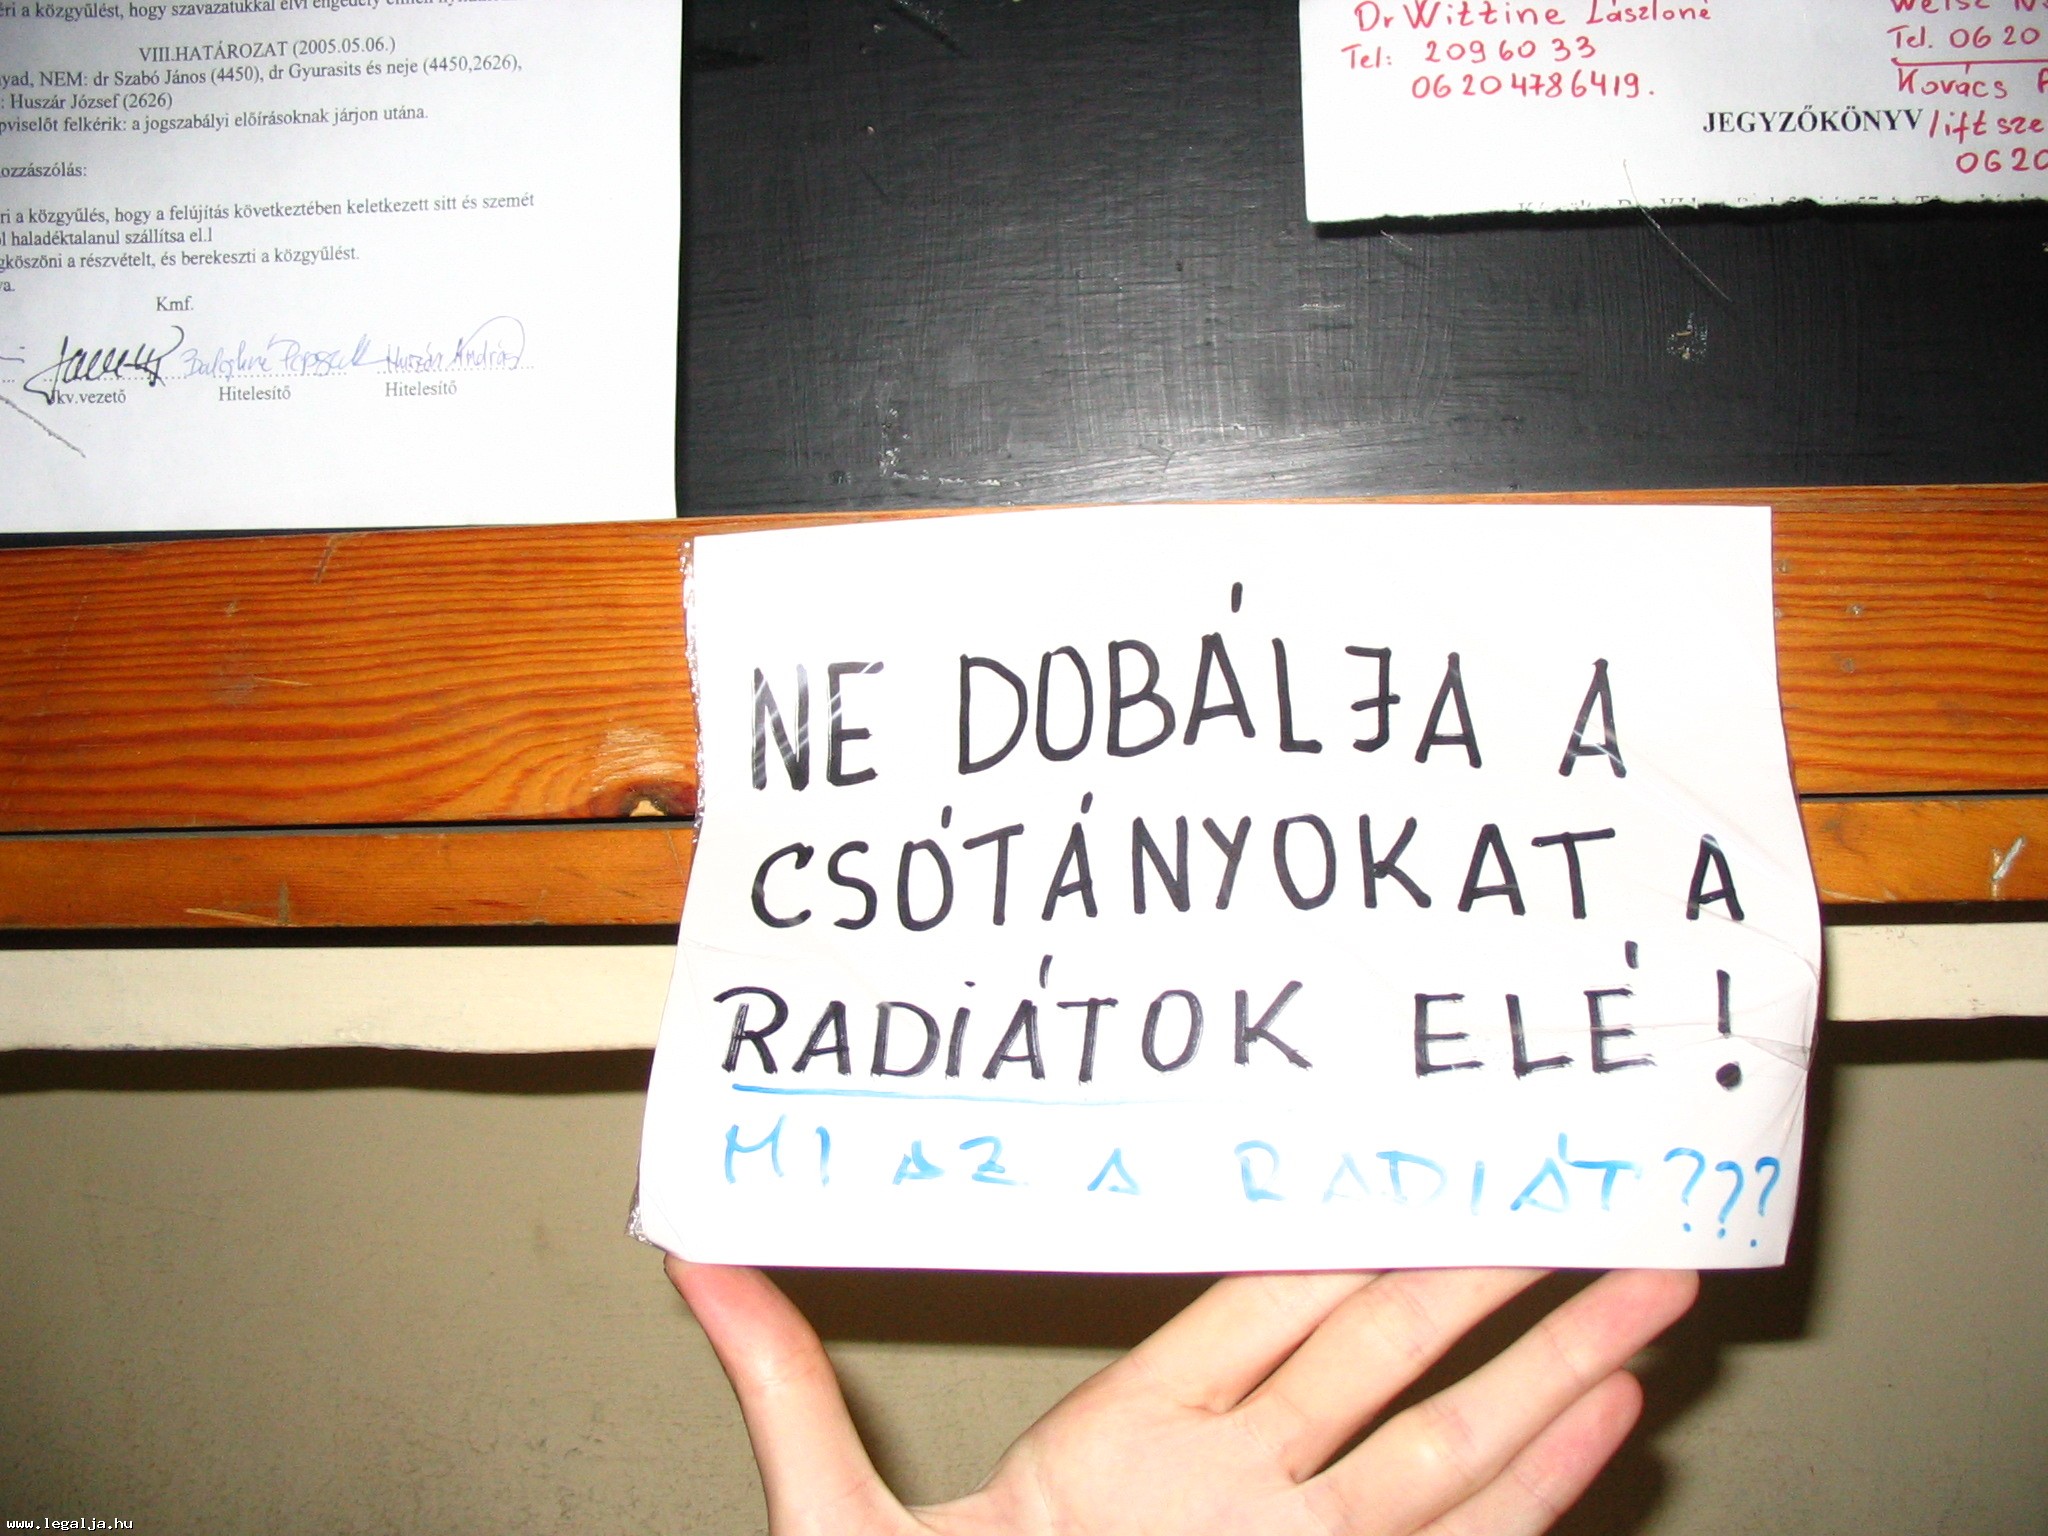 éri a közgyűlést, hogy szavazatukkal elvi engedély
VIII.HATÁROZAT (2005.05.06.)
nyad, NEM: dr Szabó János (4450), dr Gyurasits és neje (4450,2626),
: Huszár József (2626)
pviselőt felkérik: a jogszabályi előírásoknak járjon utána.
ozzászólás:
ri a közgyűlés, hogy a felújítás következtében keletkezett sitt és szemét
ól haladéktalanul szállítsa el.l
gköszöni a részvételt, és berekeszti a közgyűlést.
va.
Kmf.
Huszár András
kv.vezető Hitelesítő Hitelesítő
Dr Wittine Lászlóné
Tel: 209 60 33
06 20 4786419.
Tel. 06 20
Kovács
JEGYZŐKÖNYV lift sze
06 20
NE DOBÁLJA A
CSÓTÁNYOKAT A
RADiÁTOK ELÉ!
MI AZ A RADIÁT???
www.legalja.hu